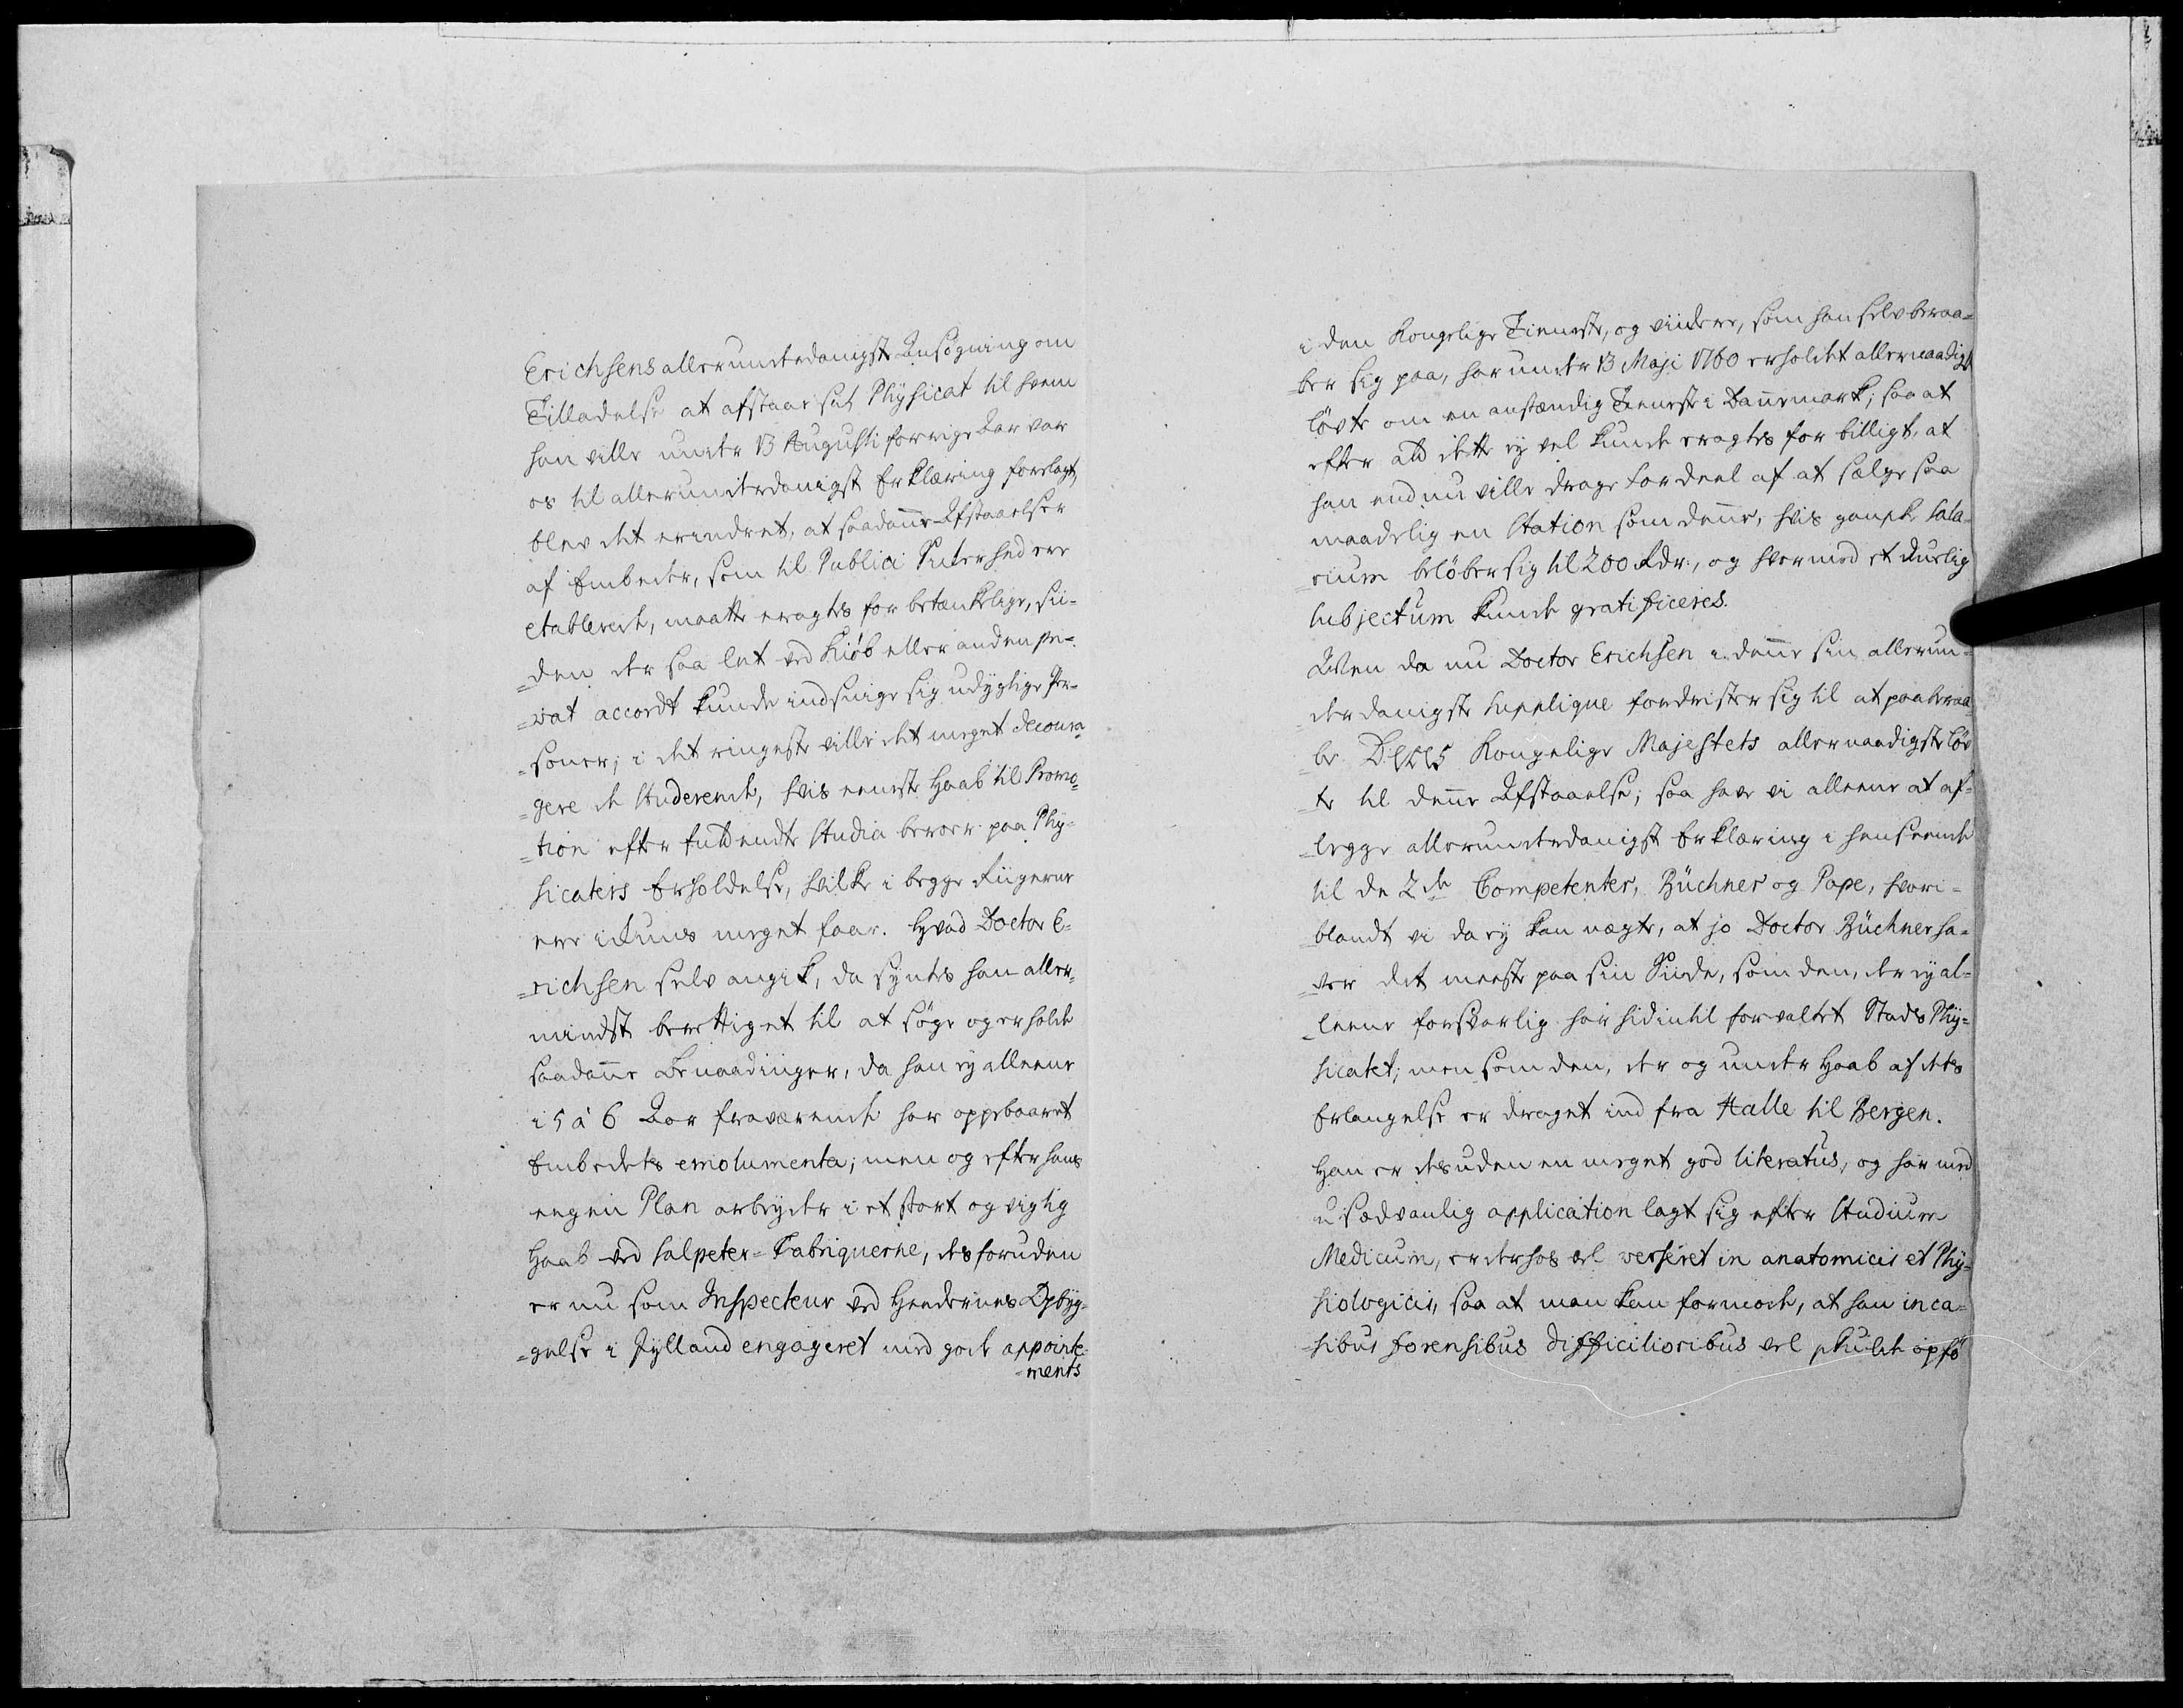 Erichsens allerunderdanigste Ansøgning om
Tilladelse at afstaae sit Physicat til hvem
han ville under 13 Augusti forrige Aar var
os til allerunderdanigst Erklæring forelagt,
blev det erindret, at saadanne Afstaaelser
af Embeder, som til Publici Sikerhed ere
etablerede, maatte eragtes for betænkelige, sii-
-den der saa let ved Kiøb eller anden pri-
-vat accordt kunde indsnige sig udygtige Per-
-soner; i det ringeste ville det meget decoura-
-gere de Studerende, hvis eeneste Haab til Promo-
-tion efter fuldendte Studia beroer paa Phy-
sicaters Erholdelse, hvilke i begge Riigerne
ere ickuns meget faae. Hvad Doctor E-
-richsen selv angik, da syntes han aller-
mindst berettiget til at søge og erholde
saadanne Benaadinger, da han ey alleene
i 5 à 6 Aar fraværende har oppebaaret
Embedets emolumenta; men og efter hans
eegen Plan arbeyder i et stort og vigtig
Haab ved Salpeter-Fabriquerne, desforuden
er nu som Inspecteur ved Heedernes Opbyg-
-gelse i Jylland engageret med gode appointe-
-ments
i den Kongelige Tieneste, og viidere, som han selv beraa-
ber sig paa, har under 13 Maji 1760 erholdet allernaadigst
løvte om en anstændig Tieneste i Dannemark; saa at
efter ald dette ey vel kunde eragtes for billigt, at
han endnu ville drage Fordeel af at sælge saa
maadelig en Station som denne, hvis gandske Sala-
rium beløber sig til 200 Rdr., og hvormed et duelig
Subjectum kunde gratificeres.
Men da nu Doctor Erichsen i denne sin allerun-
derdanigste Supplique fordrister sig til at paaberaa-
-be Deres Kongelige Majestets allernaadigste løv-
-te til denne Afstaaelse; saa have vi alleene at af-
-legge allerunderdanigst Erklæring i henseende
til de 2de Competenter, Büchner og Pape, hvori-
blandt vi da ey kan nægte, at jo Doctor Büchner ha-
-ver det meeste paa sin Siide, som den, der ey al-
-leene forsvarlig har hidindtil forvaltet Stads Phy-
sicatet; men som den, der og under Haab af dets
Erlangelse er draget ind fra Halle til Bergen.
Han er desuden en meget god literatus, og har med
usædvanlig application lagt sig efter Studium
Medicum, er derhos vel verseret in anatomicis et Phy-
siologicis, saa at man kan formode, at han in ca-
-sibus forensibus difficilioribus vel skulde opfø